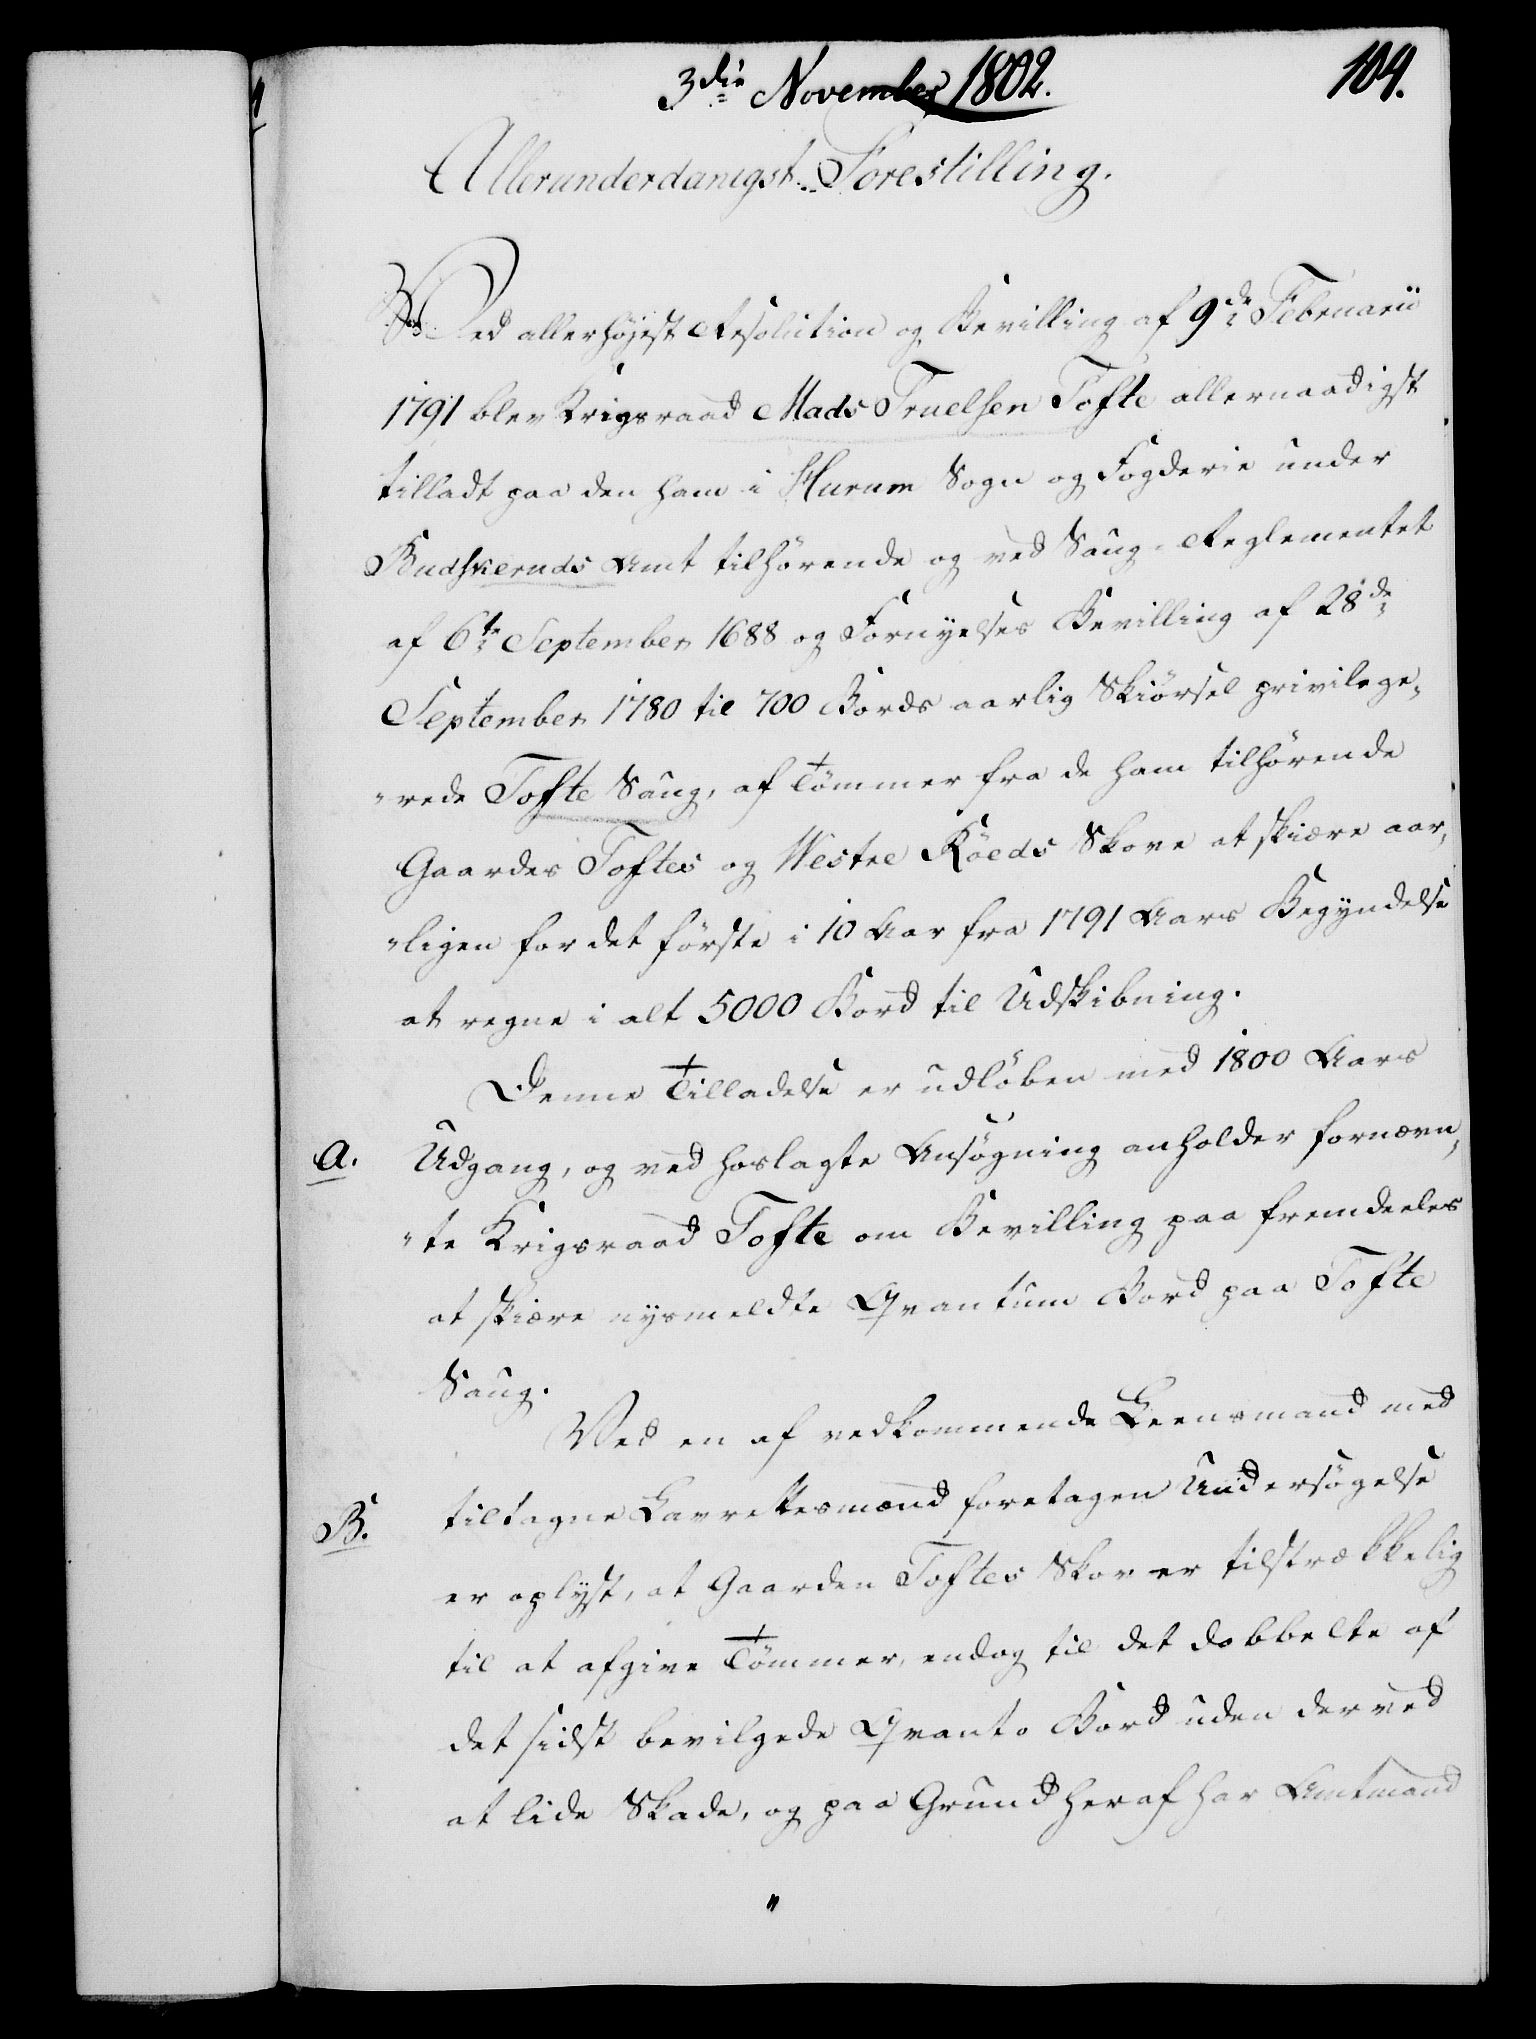 3die November 1802.
104.
Allerunderdanigst Forestilling.
Ved allerhöjest Resolution og Bevilling af 9de Februarii
1791 blev Krigsraad Mads Truelsen Tofte allernaadigst
tilladt paa den ham i Hurum Sogn og Fogderie under
Budskeruds Amt tilhörende og ved Saug-Reglementet
af 6te September 1688 og Fornyelses Bevilling af 28de
September 1780 til 700 Bords aarlig Skiörsel privilege-
"rede Tofte Saug, af Tömmer fra de ham tilhörende
Gaardes Toftes og Westre Röeds Skove at skiære aar-
"ligen for det förste i 10 Aar fra 1791 Aars Begyndelse
at regne i alt 5000 Bord til Udskibning.
Denne Tilladelse er udlöben med 1800 Aars
a. Udgang, og ved hoslagte Ansögning anholder fornævn-
"te Krigsraad Tofte om Bevilling paa fremdeeles
at skiære nysmeldte Qvantum Bord paa Tofte
Saug.
Ved en af vedkommende Leensmand med
B. tiltagne Lavrettesmænd foretagen Undersögelse
er oplyst, at Gaarden Toftes Skov er tilstrækkelig
til at afgive Tömmer, endog til det dobbelte af
det sidst bevilgede Qvanto Bord uden derved
at lide Skade, og paa Grund heraf har Amtmand
"